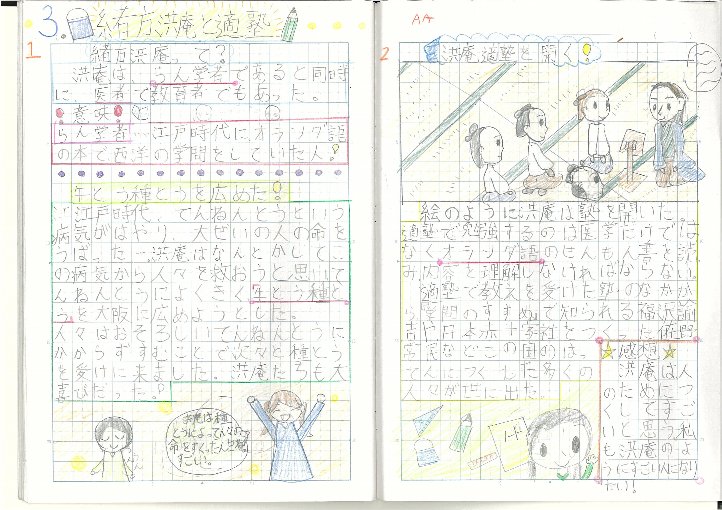 3. 緒方洪庵と適塾
1
緒方洪庵って?
洪庵は、らん学者であると同時
に、医者で教育者でもあった。
意味
らん学者…江戸時代に、オランダ語
の本で西洋の学問をしていた人!
牛とう種とうを広めた!
江戸時代、てんねんとうという
病気がはやり、大ぜいの人の命を
うばった…洪庵はなんとかして、こ
の病気から人々を救おうと思いて
んねんとうによくきく牛とう種と
うを大阪に広めようとした。
人々はおそろしいてんねんとうに
かからずすむと
を受けに来ました。洪庵たちも大
喜びだった。
洪庵は種
とうによっててんねんとうの
命をすくった
すごい。
AA
2 洪庵、適塾を開く!
絵のように洪庵は塾を開いた。
適塾で勉強するのは医学だけではな
なくオランダ語のせんもん書を読
み、内容を理解しなければならない。
適塾で教えを受けた
ら学問のすすめで知られる福沢諭
吉や日本赤十字社をつくった佐野
常民などこの国の
てんにつくした多くの
人々が世に出た。
★感想★
洪庵は人
のためにつ
くしてすご
いと思う私
も洪庵のよ
うにすごい人になり
たい!
ノート